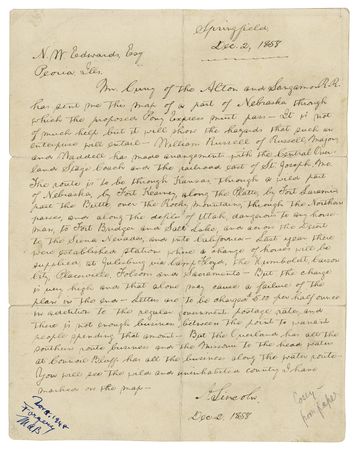 Springfield,
Dec. 2, 1858
N. W. Edwards, Esq
Peoria, Ills.
Mr. of the Alton and Sangamon R.R.
has sent me this map of a part of Nebraska through
which the proposed Pony express must pass — It is not
of much help but it will show the hazards that such an
enterprise will entail — William Russell of Russell, Major,
and Waddell has made arrangement with the Central Over-
land Stage Coach and the railroad east of St. Joseph Mo.
The route is to be through Kansas through a wild part
of Nebraska, by Fort Kearney, along the Platte, by Fort Laramie
past the Butte over the Rocky mountains, through the Northern
passes, and along the defiles of Utah, dangerous to any horse-
man, to Fort Bridger and Salt Lake, and across the Desert
to the Siena Nevadas, and into California — Last year there
were established stations where a change of horses will be
supplied at Julesburg via Camp Floyd, the Humboldt, Carson
City, Placerville, Folsom and Sacramento — But the charge
is very high and that alone may cause a failure of the
plan in the end — Letters are to be charged 5.00 per half ounce
in addition to the regular government postage rate, and
there is not enough business between the points to warrant
people spending that amount — But the Overland has all the
southern route business and the Missouri to the head water
at Council Bluff has all the business along the water route —
You will see the wild and uninhabited country I have
marked on the map —
A. Lincoln
Dec 2, 1858
Forgery
MAB
paper